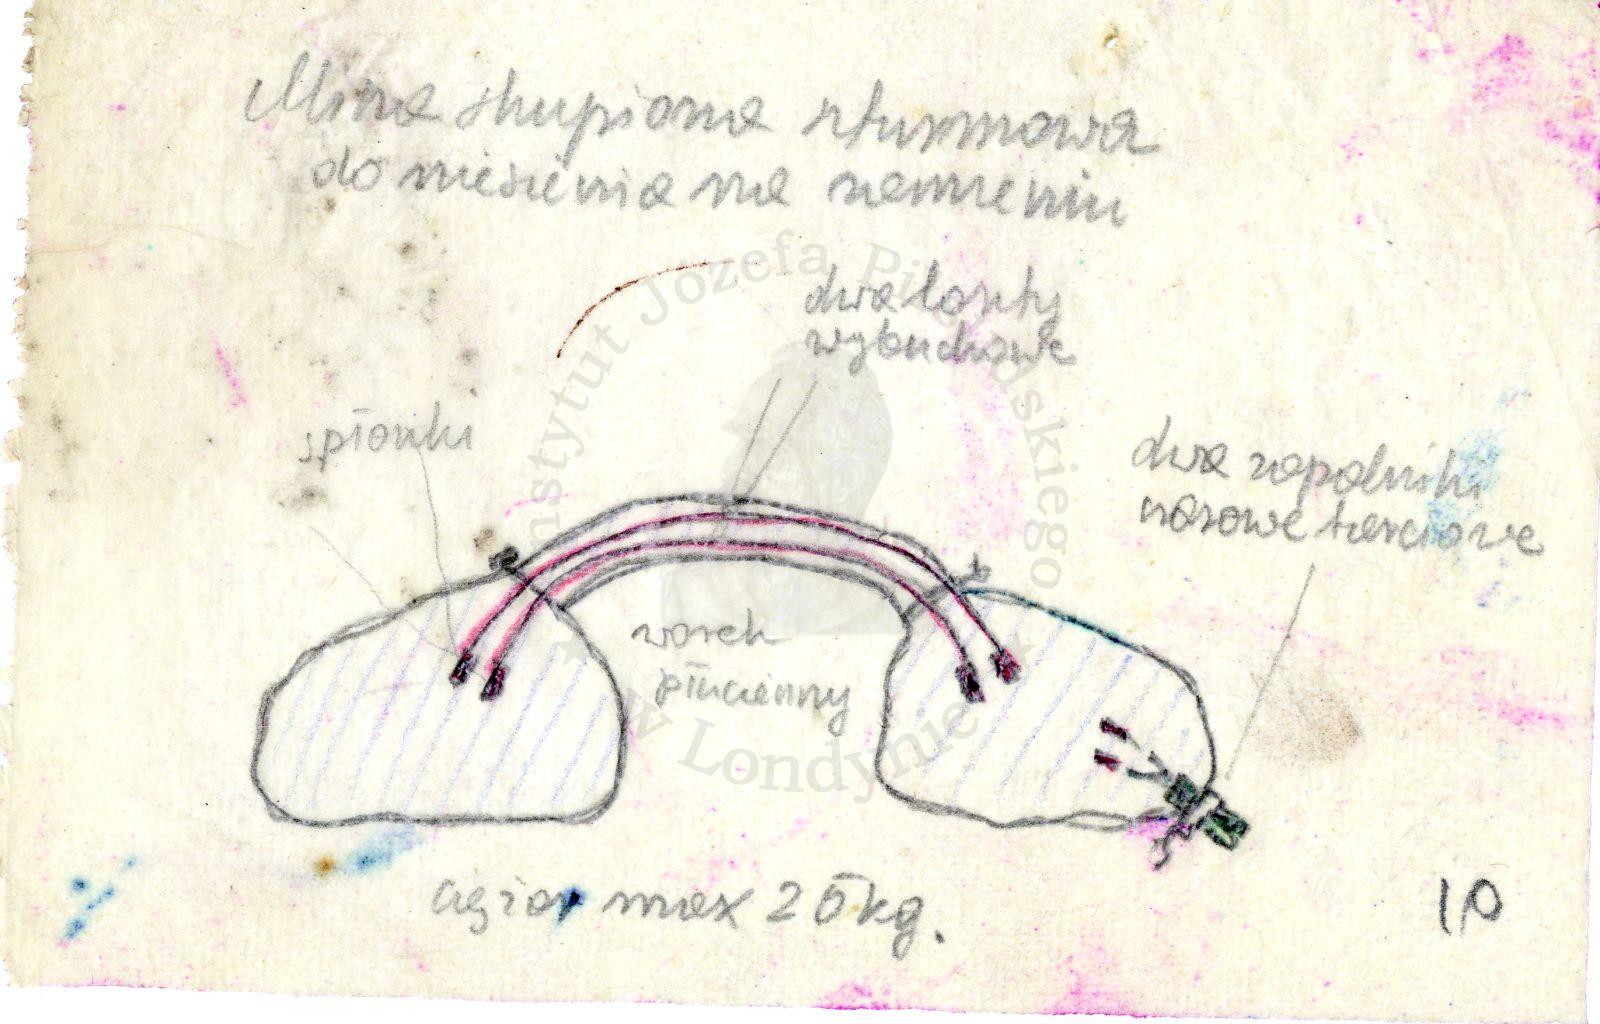 Mina skupiona szturmowa
do niesienia na ramieniu
dwa lonty
wybuchowe
spłonki
dwa zapalniki
czasowe tarciowe
worek
płócienny
ciężar max 25 kg.
10
Instytut Józefa Piłsudskiego
w Londynie